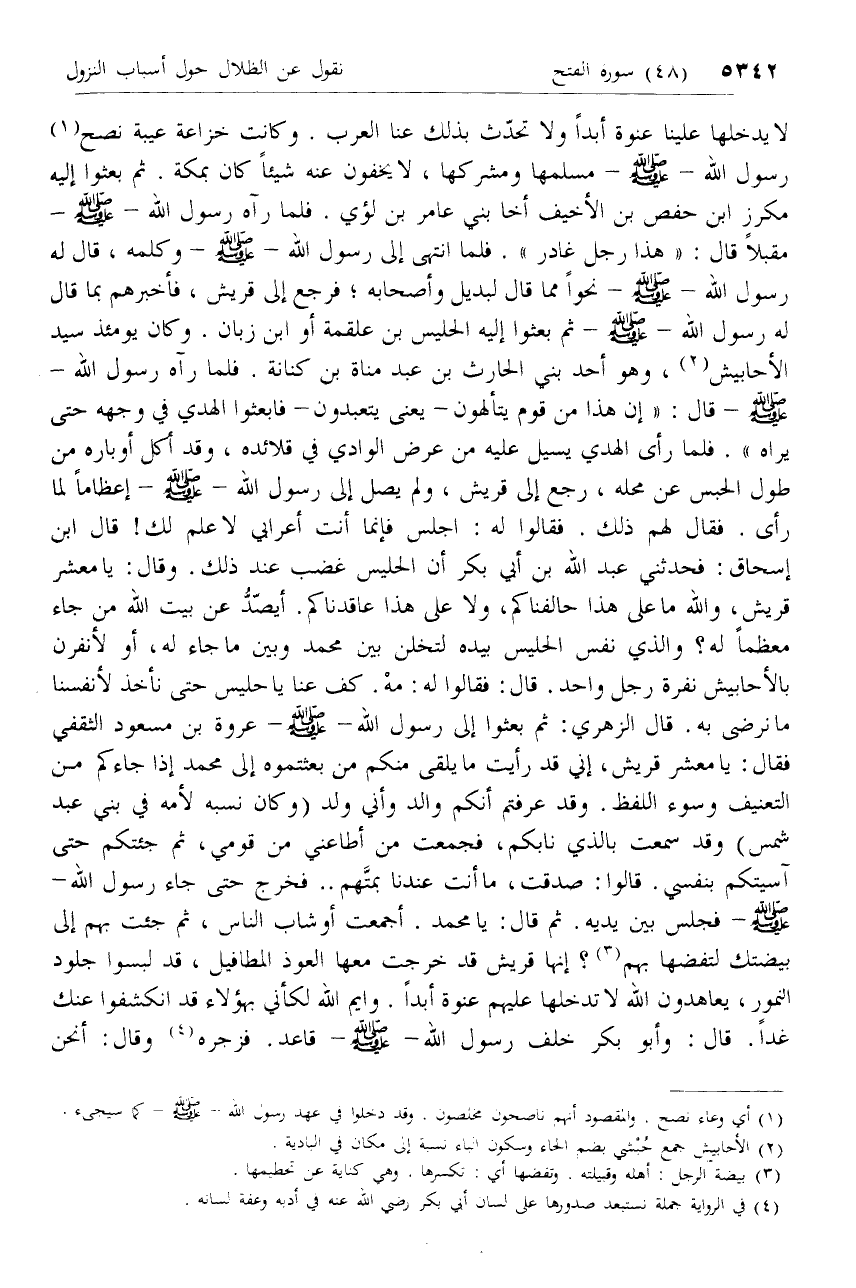 ٥٣٤٢ (٤٨) سورة الفتح نقول عن الظلال حول أسباب النزول
لا يدخلها علينا عنوة أبداً ولا تحدّث بذلك عنا العرب . وكانت خزاعة عيبة نصح(١)
رسول الله - ﷺ - مسلمها ومشركها ، لا يخفون عنه شيئاً كان بمكة . ثم بعثوا إليه
مكرز ابن حفص بن الأخيف أخا بني عامر بن لؤي . فلما رآه رسول الله - ﷺ -
مقبلاً قال : « هذا رجل غادر » . فلما انتهى إلى رسول الله - ﷺ - وكلمه ، قال له
رسول الله - ﷺ - نحواً مما قال لبديل وأصحابه ؛ فرجع إلى قريش ، فأخبرهم بما قال
له رسول الله - ﷺ - ثم بعثوا إليه الحليس بن علقمة أو ابن زبان . وكان يومئذ سيد
الأحابيش(٢) ، وهو أحد بني الحارث بن عبد مناة بن كنانة . فلما رآه رسول الله -
ﷺ - قال : « إن هذا من قوم يتألهون - يعنى يتعبدون - فابعثوا الهدي في وجهه حتى
يراه » . فلما رأى الهدي يسيل عليه من عرض الوادي في قلائده ، وقد أكل أوباره من
طول الحبس عن محله ، رجع إلى قريش ، ولم يصل إلى رسول الله - ﷺ - إعظاماً لما
رأى . فقال لهم ذلك . فقالوا له : اجلس فإنما أنت أعرابي لا علم لك! قال ابن
إسحاق : فحدثني عبد الله بن أبي بكر أن الحليس غضب عند ذلك . وقال : يا معشر
قريش، والله ما على هذا حالفناكم، ولا على هذا عاقدناكم. أيصدُّ عن بيت الله من جاء
معظماً له؟ والذي نفس الحليس بيده لتخلن بين محمد وبين ما جاء له، أو لأنفرن
بالأحابيش نفرة رجل واحد. قال: فقالوا له: مهْ. كف عنا يا حليس حتى نأخذ لأنفسنا
ما نرضى به. قال الزهري: ثم بعثوا إلى رسول الله - ﷺ - عروة بن مسعود الثقفي
فقال: يا معشر قريش، إني قد رأيت ما يلقى منكم من بعثتموه إلى محمد إذا جاءكم من
التعنيف وسوء اللفظ. وقد عرفتم أنكم والد وأني ولد (وكان نسبه لأمه في بني عبد
شمس) وقد سمعت بالذي نابكم، فجمعت من أطاعني من قومي، ثم جئتكم حتى
آسيتكم بنفسي. قالوا: صدقت، ما أنت عندنا بمتَّهم.. فخرج حتى جاء رسول الله -
ﷺ - فجلس بين يديه. ثم قال: يا محمد. أجمعت أوشاب الناس ، ثم جئت بهم إلى
بيضتك لتفضها بهم(٣) ؟ إنها قريش قد خرجت معها العوذ المطافيل ، قد لبسوا جلود
النمور ، يعاهدون الله لا تدخلها عليهم عنوة أبداً . وايم الله لكأني بهؤلاء قد انكشفوا عنك
غداً. قال: وأبو بكر خلف رسول الله - ﷺ - قاعد. فزجره(٤) وقال: أنحن
(١) أي وعاء نصح . والمقصود أنهم ناصحون مخلصون . وقد دخلوا في عهد رسول الله - ﷺ - كما سيجيء .
(٢) الأحابيش جمع حُبْشي بضم الحاء وسكون الباء نسبة إلى مكان في البادية .
(٣) بيضة الرجل : أهله وقبيلته . وتفضها أي : تكسرها . وهي كناية عن تحطيمها .
(٤) في الرواية جملة نستبعد صدورها على لسان أبي بكر رضي الله عنه في أدبه وعفة لسانه .